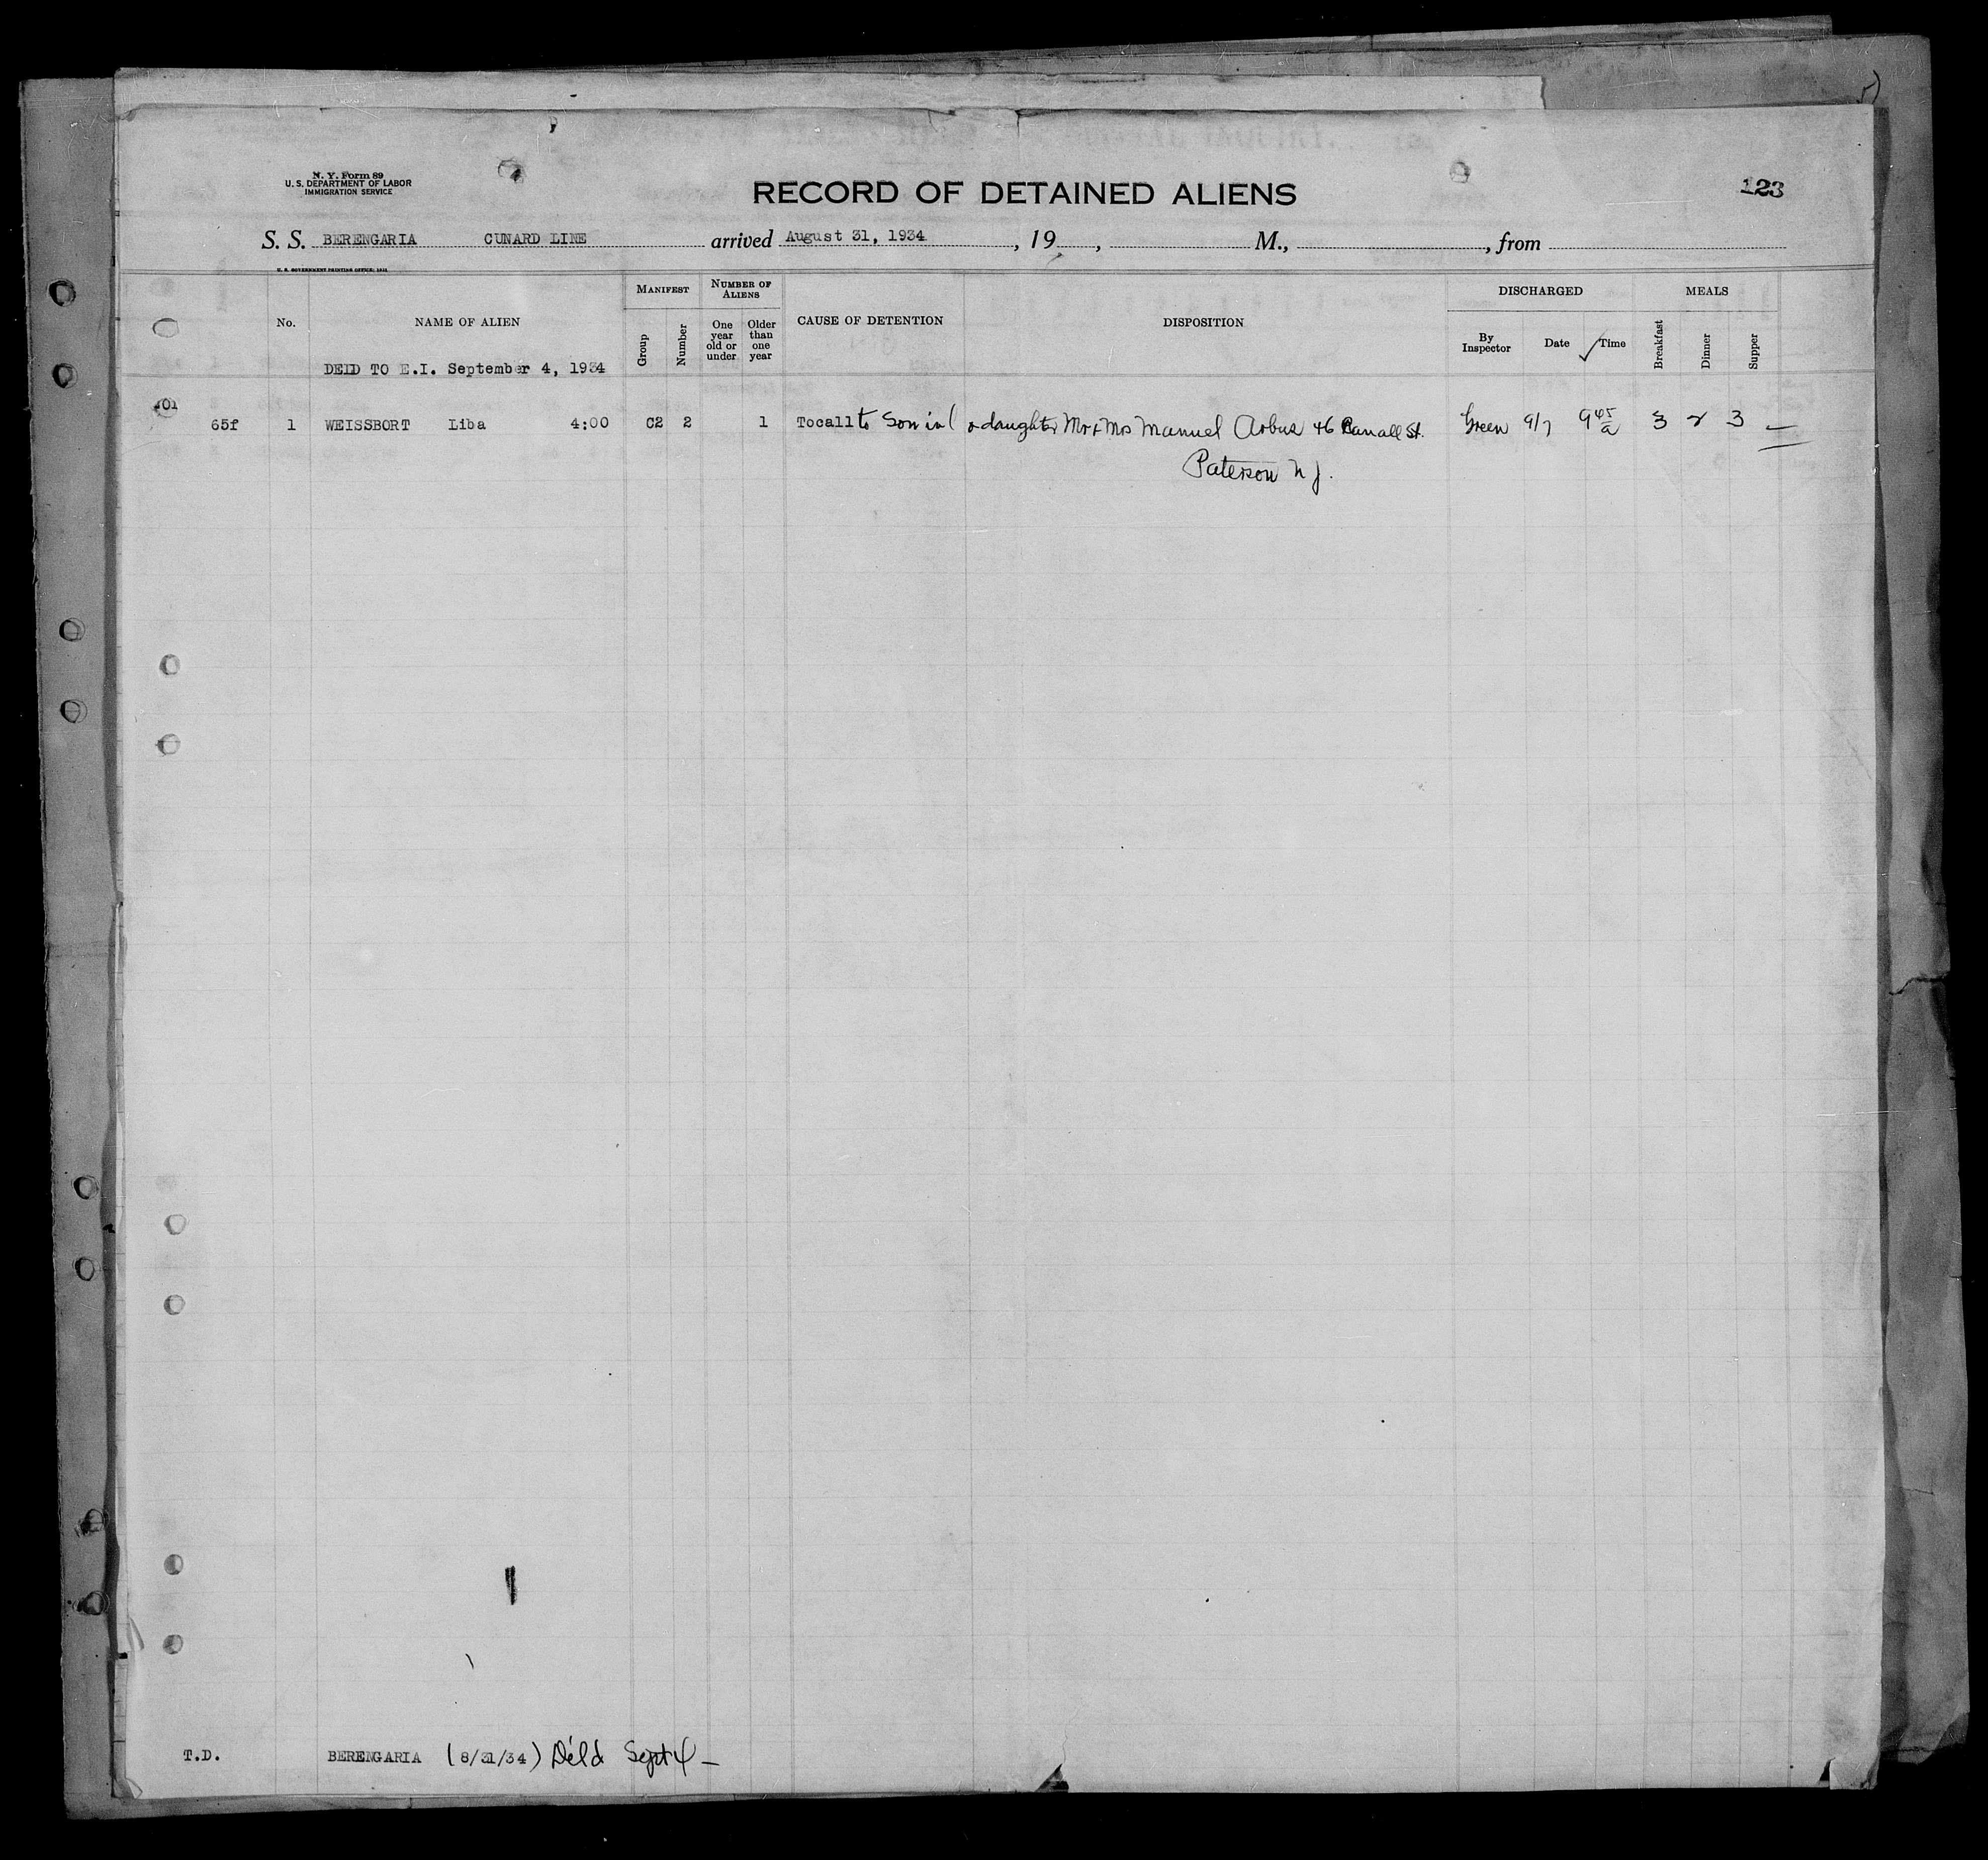 N. Y. Form 89
U. S. DEPARTMENT OF LABOR
IMMIGRATION SERVICE
RECORD OF DETAINED ALIENS
123
S. S. BERENGARIA CUNARD LINE arrived August 31, 1934, 19 , M., , from
U. S. GOVERNMENT PRINTING OFFICE:
No.
NAME OF ALIEN
MANIFEST
Group
Number
NUMBER OF ALIENS
One year old or under
Older than one year
CAUSE OF DETENTION
DISPOSITION
DISCHARGED
By Inspector
Date
Time
MEALS
Breakfast
Dinner
Supper
DELD TO E.I. September 4, 1934
65f 1 WEISSBORT Liba 4:00 C2 2 1 Tocall to Son in l & daughter Mr & Mrs Manuel Arbus 46 St. Green 9/7 9 45 a 3 2 3 —
Paterson N J.
T.D. BERENGARIA (8/31/34) Deld Sept 4 —